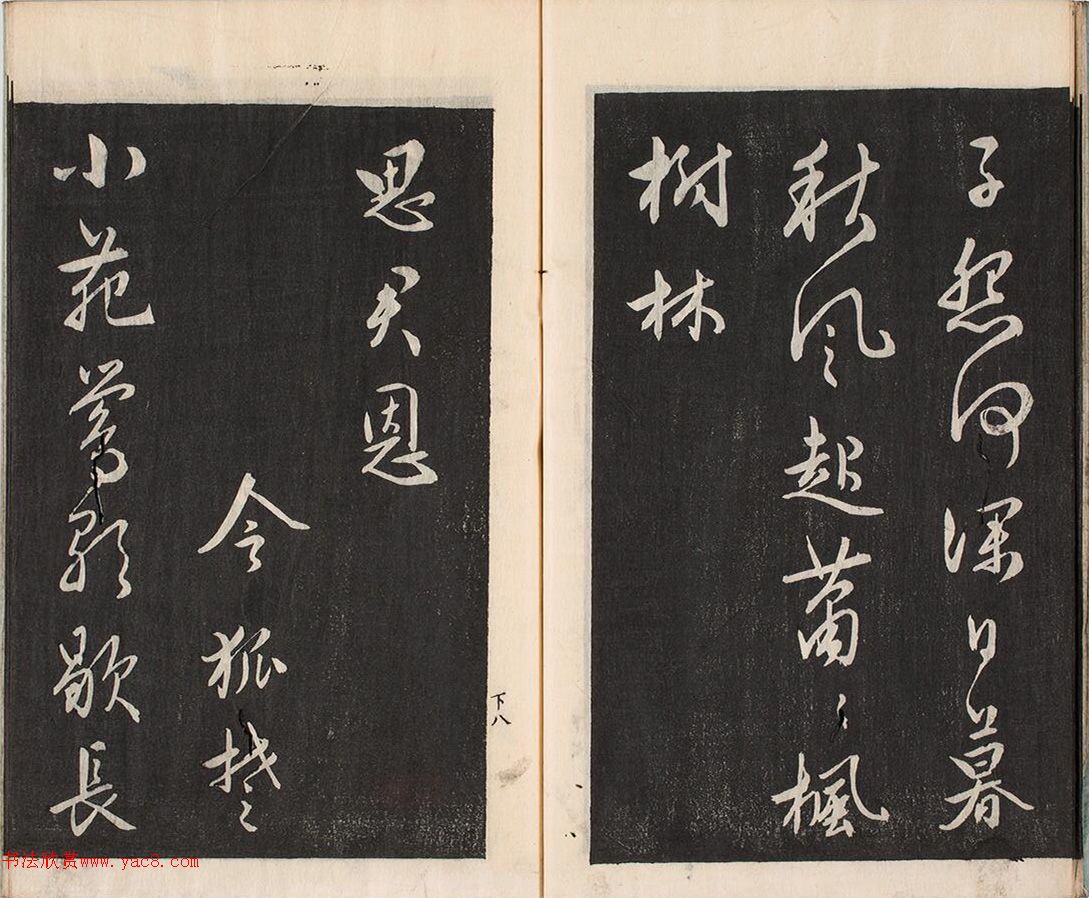 子怨何深日暮
秋風起蕭〻楓
樹林
思君恩
令狐楚
小苑鶯歌歇長
下八
书法欣赏www.yac8.com